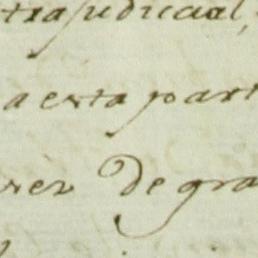 trajudicial,
a esta part
rez De gra